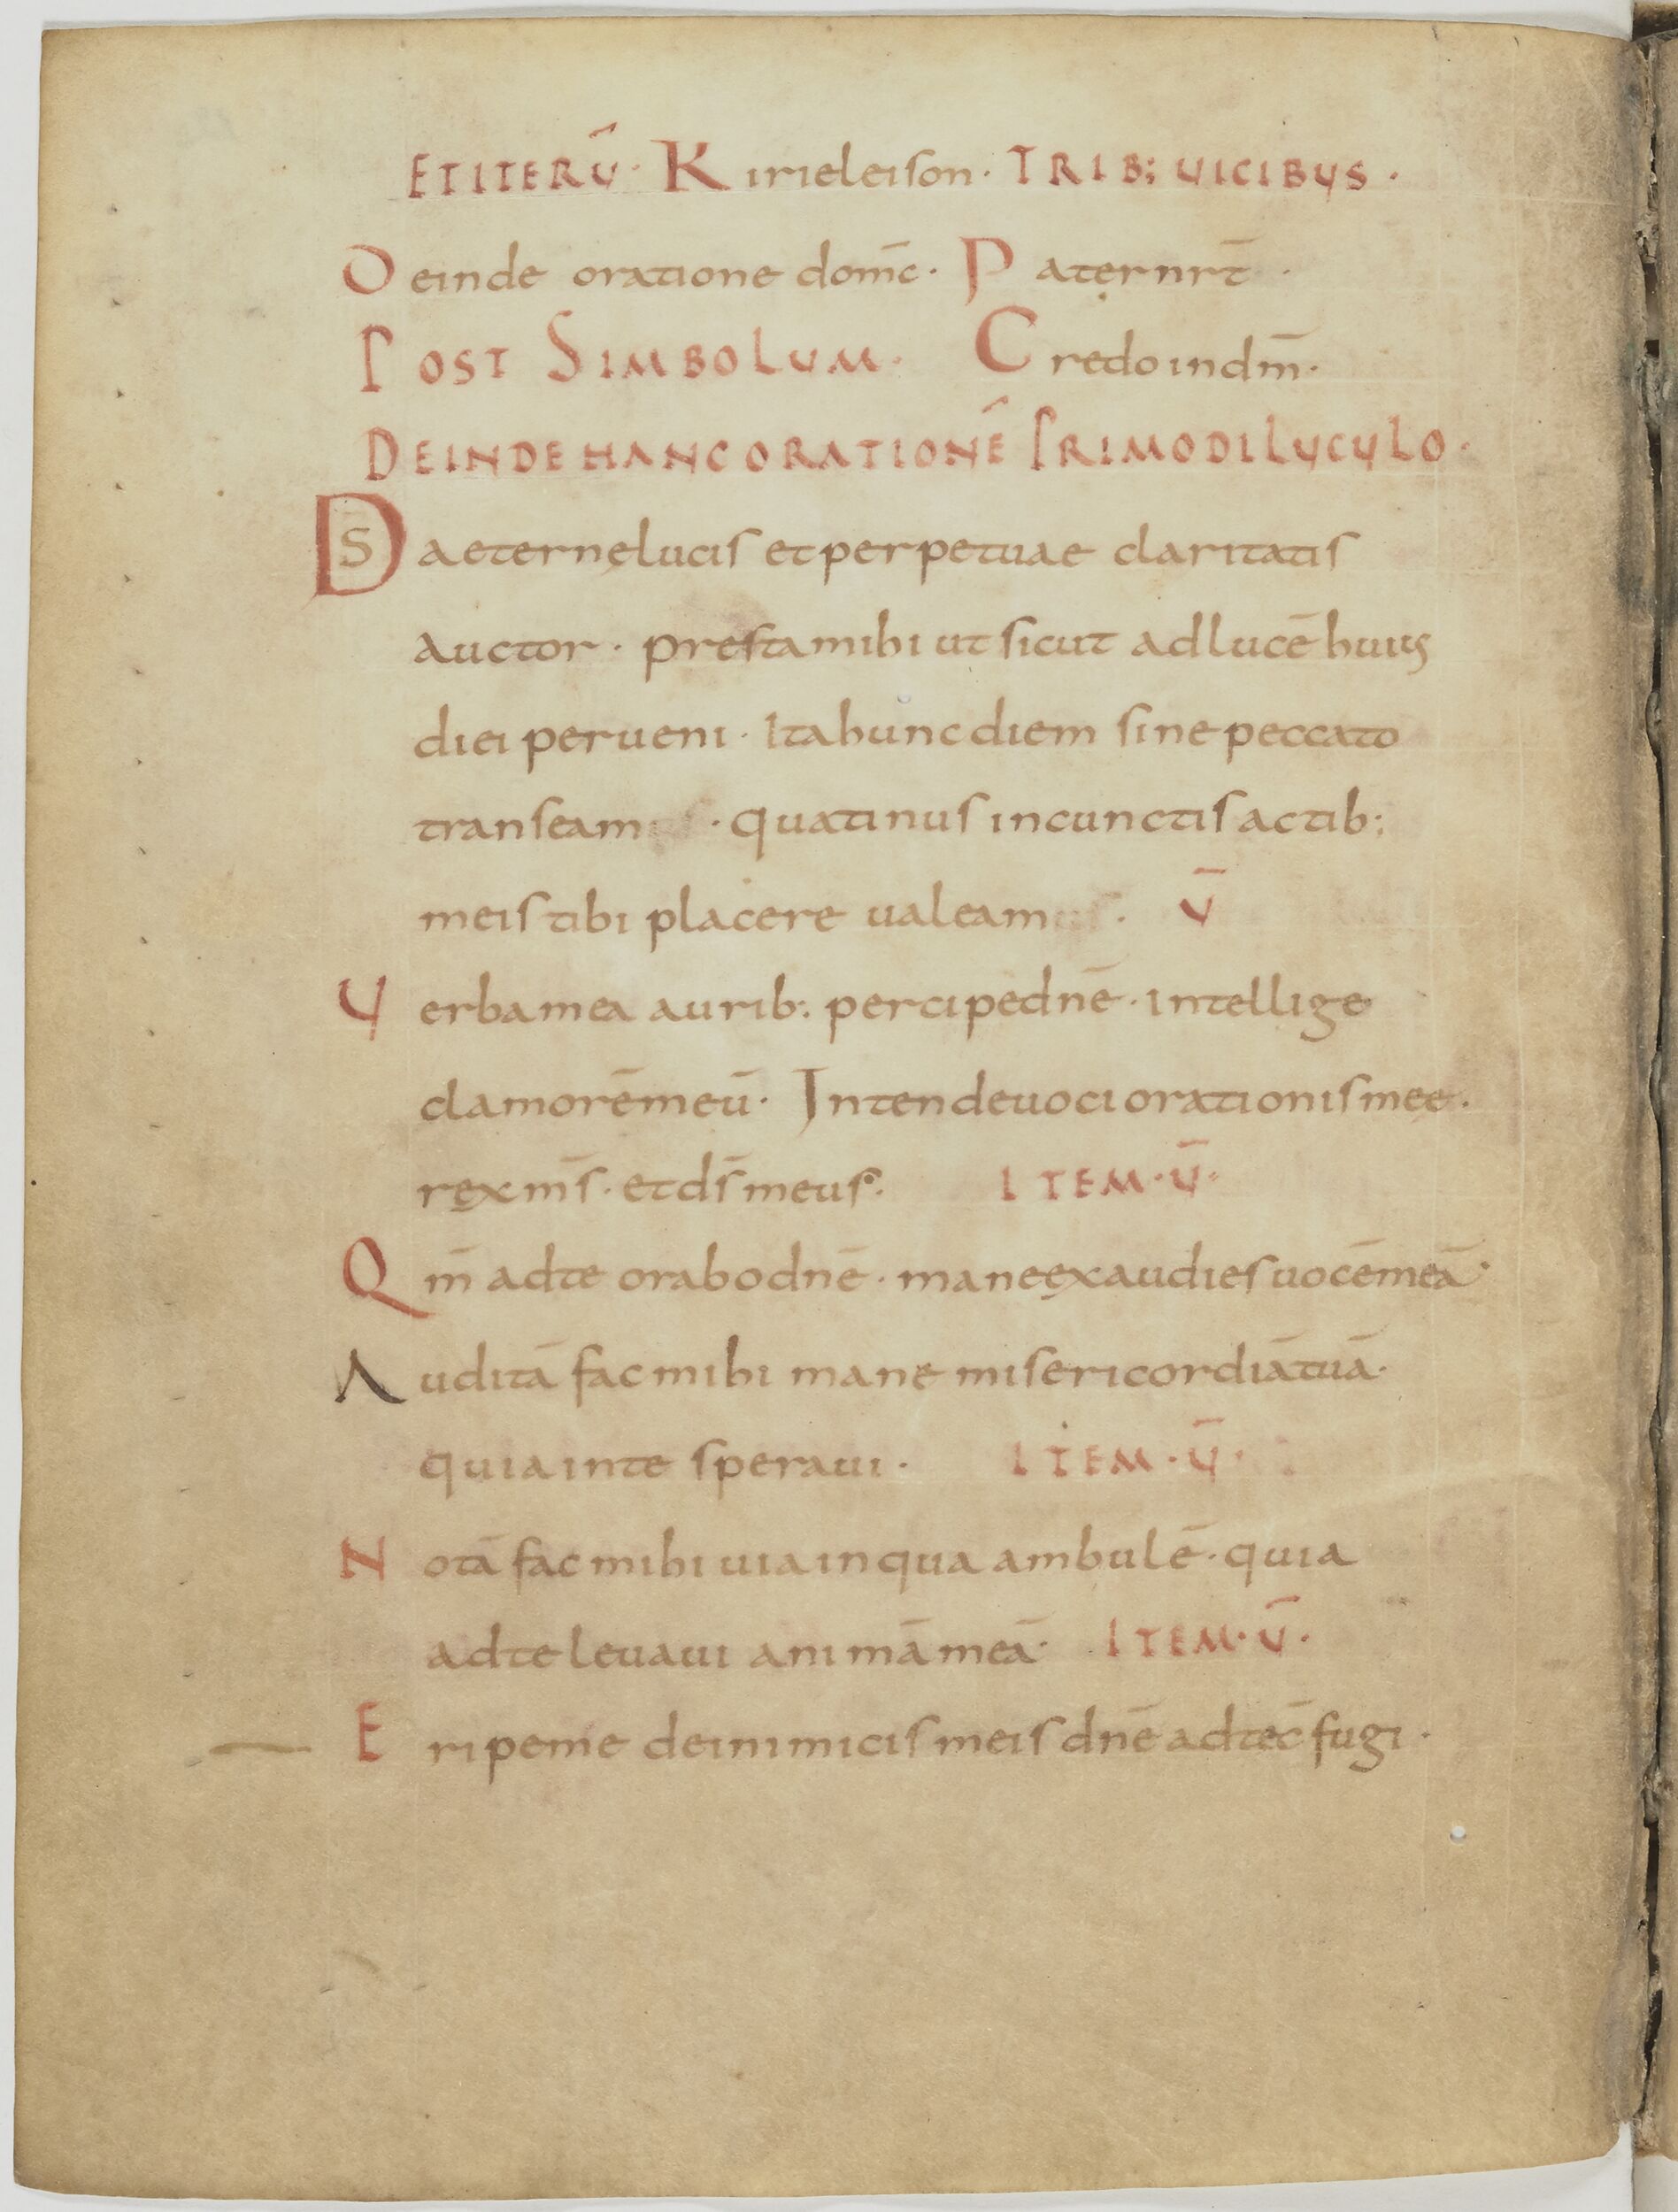 ETITERŪ· Kirieleison· TRIB; UICIBUS·
Deinde oratione dom̄c· Paternr̄t·
POST SIMBOLUM· Credoindm̄·
DEINDEHANCORATIONĒ PRIMODILUCULO·
Ds aeternęlucis etperpetuae claritatis
auctor· prestamihi utsicut adlucē huius
diei perueni· Itahuncdiem sinepeccato
transeam· quatinus incunctis actib;
meis tibi placere ualeam· V̄
Uerbamea aurib; percipednē· intellige
clamorēmeū· Intendeuociorationismeę·
rexm̄s· etds̄meus· ITEM·V̄·
Qm̄ adte orabodnē· maneexaudiesuocēmeā·
Auditā facmihi mane misericordiātuā·
quiainte speraui· ITEM·V̄·
Notā facmihiuiainqua ambulē· quia
adteleuaui animāmeā· ITEM·V̄·
Eripeme deinimicismeisdnē adtec̄fugi·